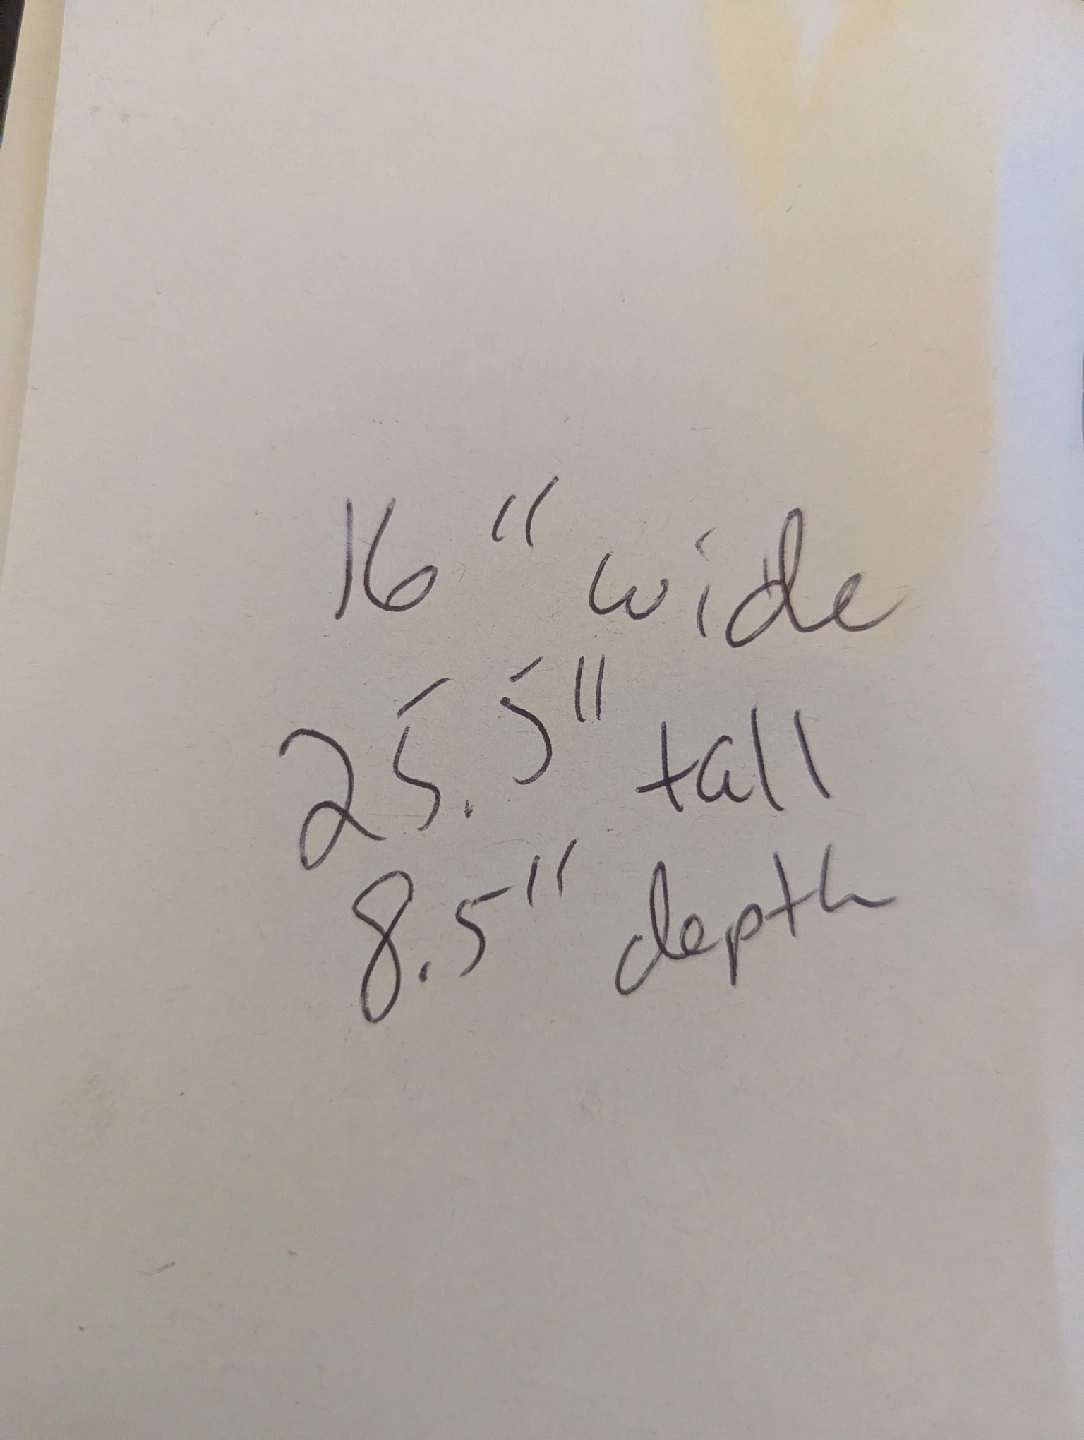 16" wide
25.5" tall
8.5" depth